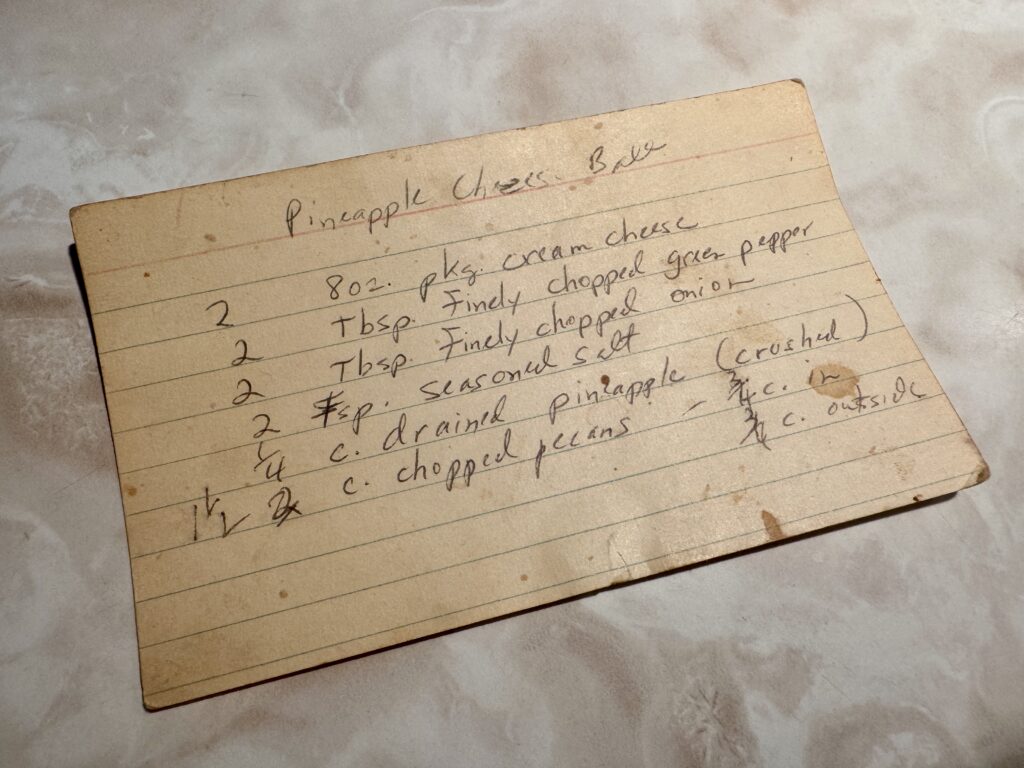 Pineapple Cheese Ball
2 8 oz. pkg. cream cheese
2 Tbsp. Finely chopped green pepper
2 Tbsp. Finely chopped onion
2 tsp. seasoned salt
1/4 c. drained pineapple (crushed)
1 1/2 c. chopped pecans - 3/4 c. in
c. outside